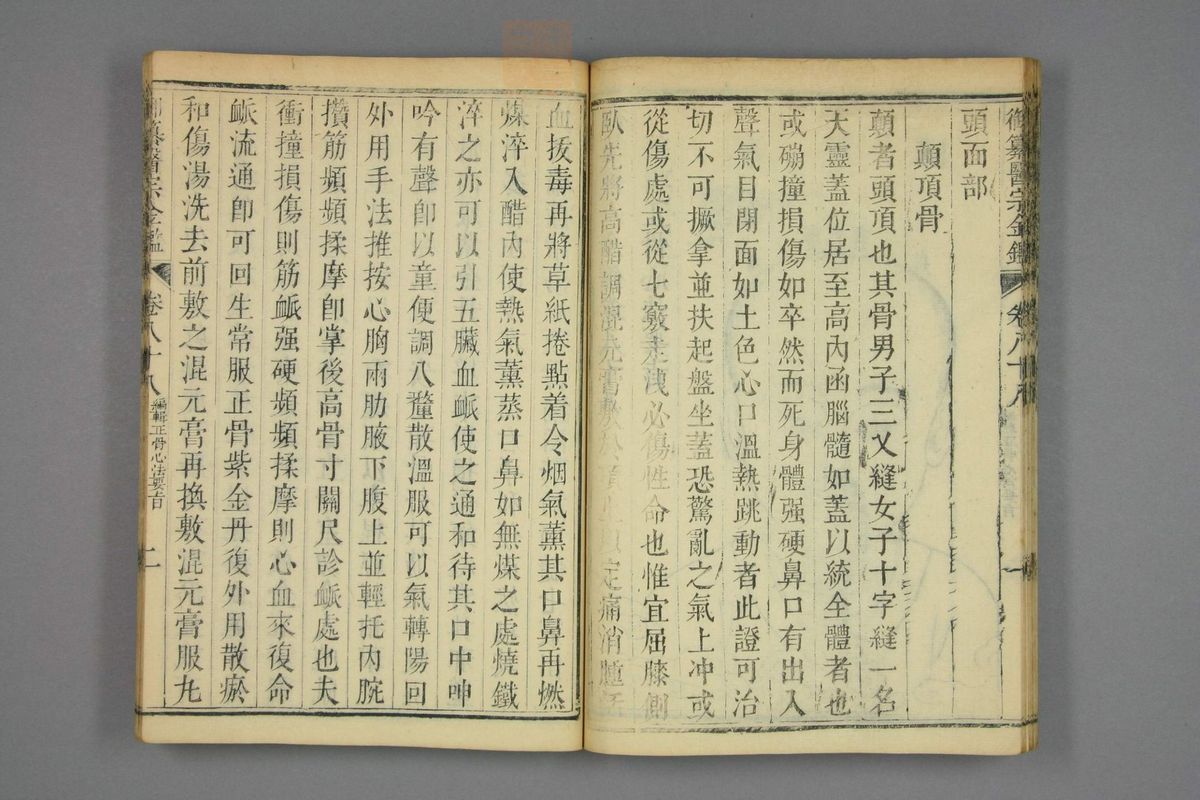 御纂醫宗金鑑 卷八十八 一
頭面部
顛頂骨
顛者頭頂也其骨男子三叉縫女子十字縫一名
天靈蓋位居至高內函腦髓如蓋以統全體者也
或磞撞損傷如卒然而死身體强硬鼻口有出入
聲氣目閉面如土色心口溫熱跳動者此證可治
切不可撅拿並扶起盤坐蓋恐驚亂之氣上冲或
從傷處或從七竅走洩必傷性命也惟宜屈膝側
臥先將高醋調混元膏敷於頂上以定痛消腫活
血拔毒再將草紙捲點着令烟氣薰其口鼻再燃
煤淬入醋內使熱氣薰蒸口鼻如無煤之處燒鐵
淬之亦可以引五臟血脈使之通和待其口中呻
吟有聲卽以童便調八釐散溫服可以氣轉陽回
外用手法推按心胸兩肋腋下腹上並輕托內腕
攢筋頻頻揉摩卽掌後高骨寸關尺診脈處也夫
衝撞損傷則筋脈强硬頻頻揉摩則心血來復命
脈流通卽可回生常服正骨紫金丹復外用散瘀
和傷湯洗去前敷之混元膏再換敷混元膏服九
御纂醫宗金鑑 卷八十八 編輯正骨心法要旨 二